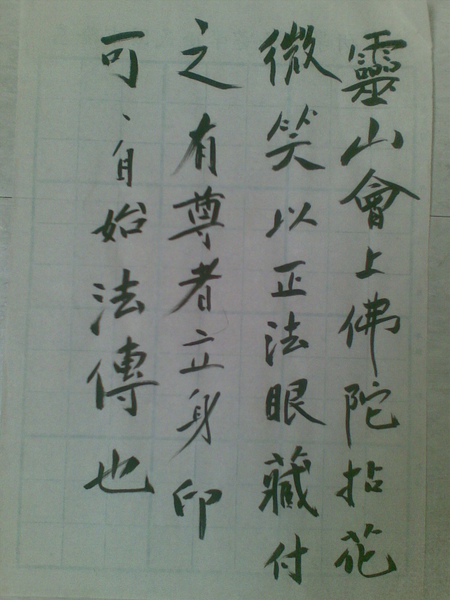 靈山會上佛陀拈花
微笑以正法眼藏付
之有尊者立身印
可自始法傳也